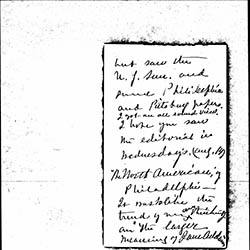 but saw the
N.Y. Sun. and
some Philidelphia
and Pittsburg papers.
I got an all round view.
I hope you saw
the editorial in
Wednesday's (Aug. 14)
The North American, of
Philadelphia
to
trend of my thinking
and the larger
meaning of Jane Adda